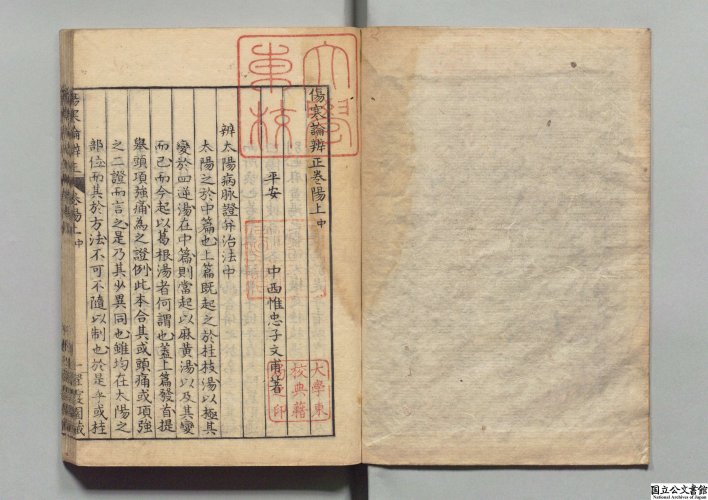 傷寒論辨正卷陽上中
平安 中西惟忠子文甫著
辨太陽病脉證并治法中
太陽之於中篇也上篇既起之於桂枝湯以極其
變於四逆湯在中篇則當起以麻黄湯以及其變
而已而今起以葛根湯者何謂也蓋上篇發首提
舉頭項強痛為之證例此本合其或頭痛或項強
之二證而言之是乃其少異同也雖均在太陽之
部位而其於方法不可不隨以制也於是乎或桂
傷寒論辨正 卷陽上中
文學東校
大學東校典籍局印
国立公文書館
National Archives of Japan